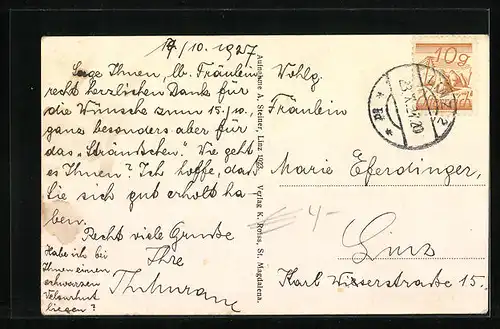 17/10. 1927
Sage Ihnen, lb. Fräulein
recht herzlichen Dank für
die Wünsche zum 15./10.,
ganz besonders aber für
das "Sträußchen". Wie geht
es Ihnen? Ich hoffe, daß
Sie sich gut erholt ha-
ben.
Recht viele Grüße
Ihre
Habe ich bei
Ihnen einen
schwarzen
liegen?
Aufnahme A. Steiner, Linz 1923. Verlag K. Reiss, St. Magdalena.
Wohlg.
Fräulein
Marie Eferdinger,
Linz
Karl Wiserstraße 15.
4-
10g
LINZ 2